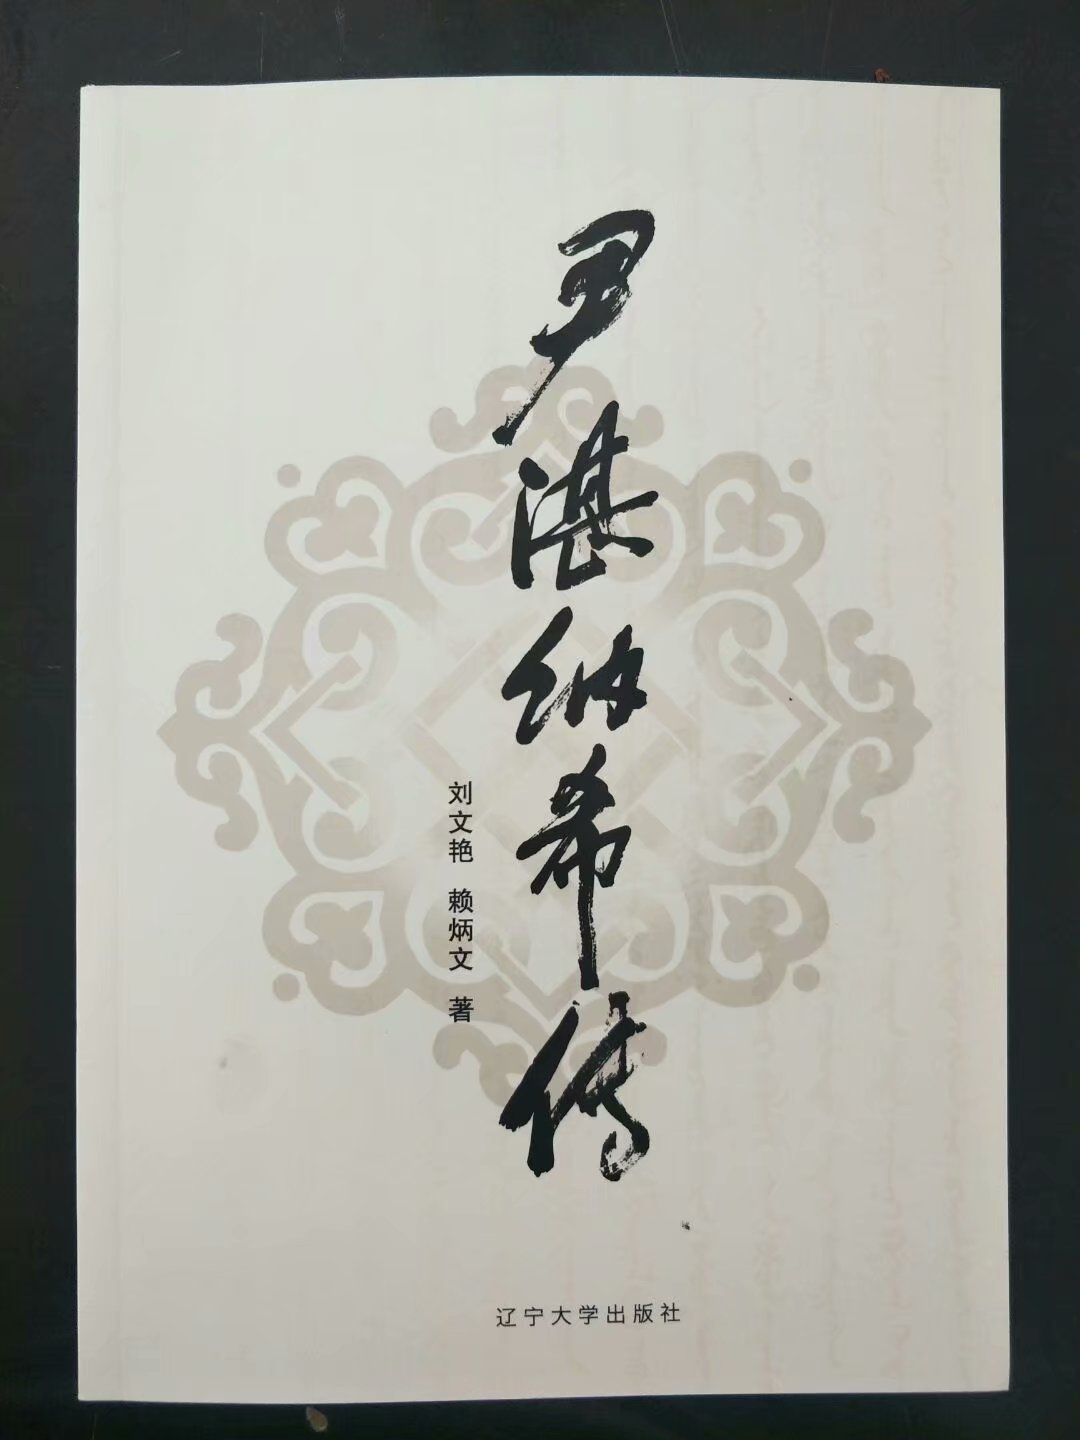 尹湛纳希传
刘文艳 赖炳文 著
辽宁大学出版社